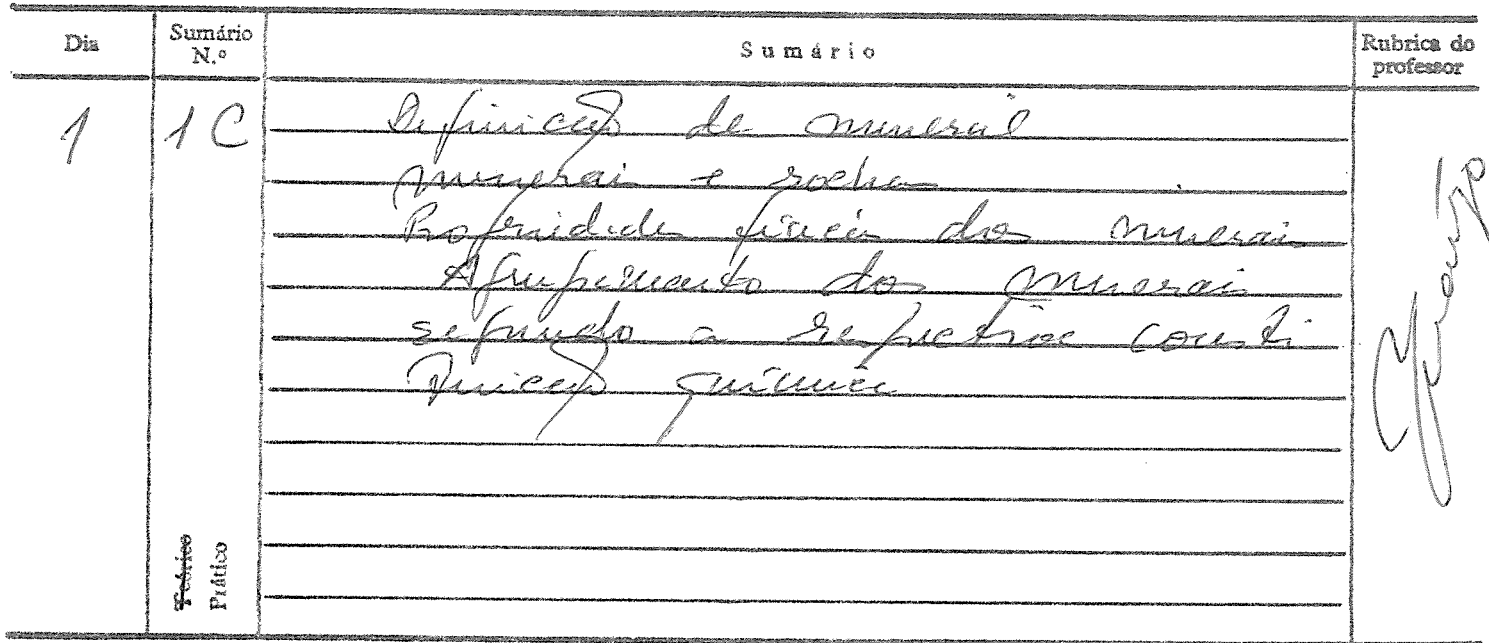 Dia
Sumário N.º
Sumário
Rubrica do professor
1
1 C
Definição de mineral
minerais e rochas
Propriedades físicas dos minerais
Agrupamento dos minerais
segundo a respectiva consti
tuição química
Teórico
Prático